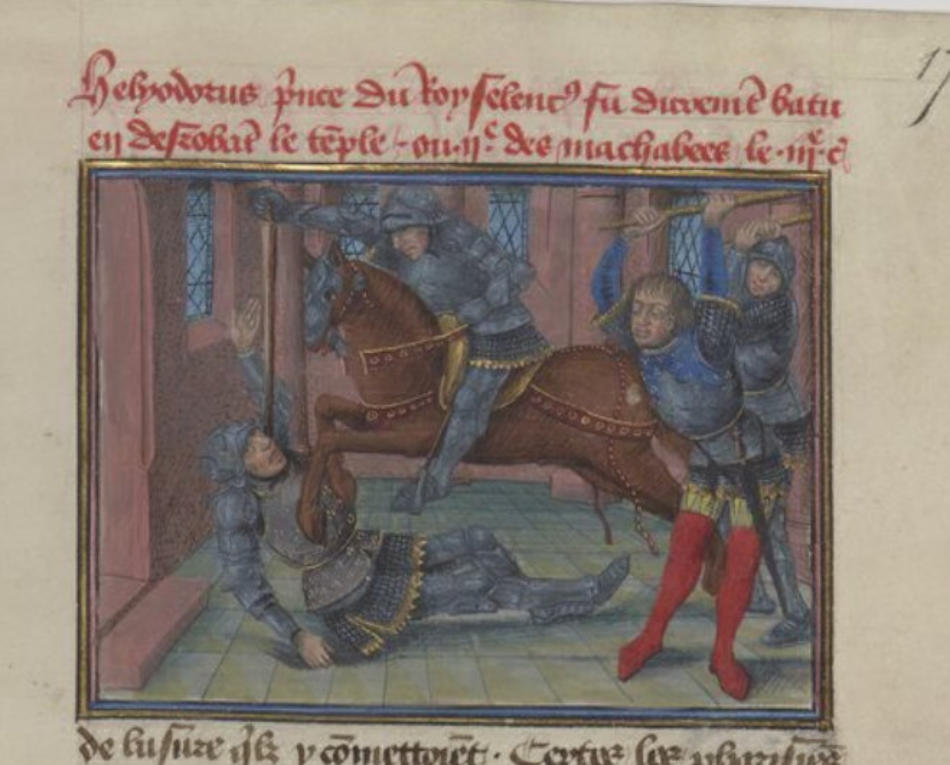 17
Helyodorus p̄nce du Roy seleucꝰ fu duremēt batu
en desrobāt le tēple · ou ·ijᵉ· des machabees le ·iijᵉ· c̄
de lusure qlz y cōmettoiēt · Certes les pharisiens